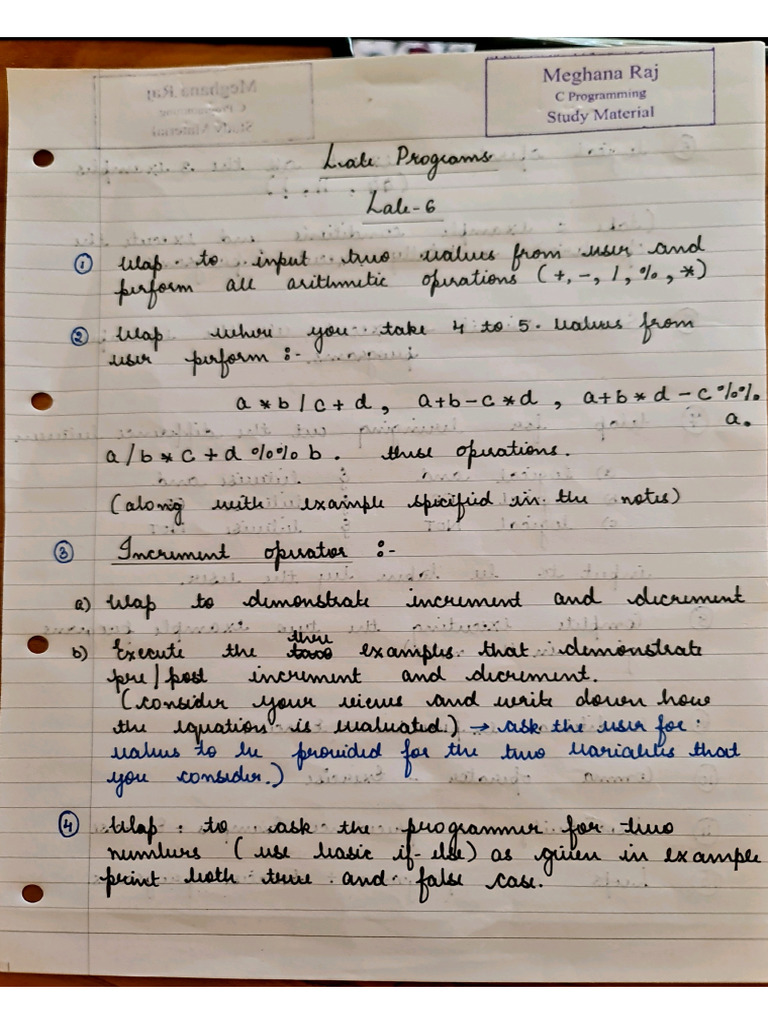 Meghana Raj
C Programming
Study Material
Lab Programs
Lab-6
① Wap to input two values from user and
perform all arithmetic operations (+, -, /, %, *)
② Wap where you take 4 to 5 values from
user perform :-
a * b / c + d, a+b-c*d, a+b*d-c%%
a.
a/b*c+d%%b. these operations.
(along with example specified in the notes)
③ Increment operator :-
a) Wap to demonstrate increment and decrement
three
b) Execute the examples that demonstrate
pre/post increment and decrement.
(consider your views and write down how
the equation is evaluated.) → ask the user for
values to be provided for the two variables that
you consider.)
④ Wap to ask the programmer for two
numbers (use basic if-else) as given in example
print both true and false case.